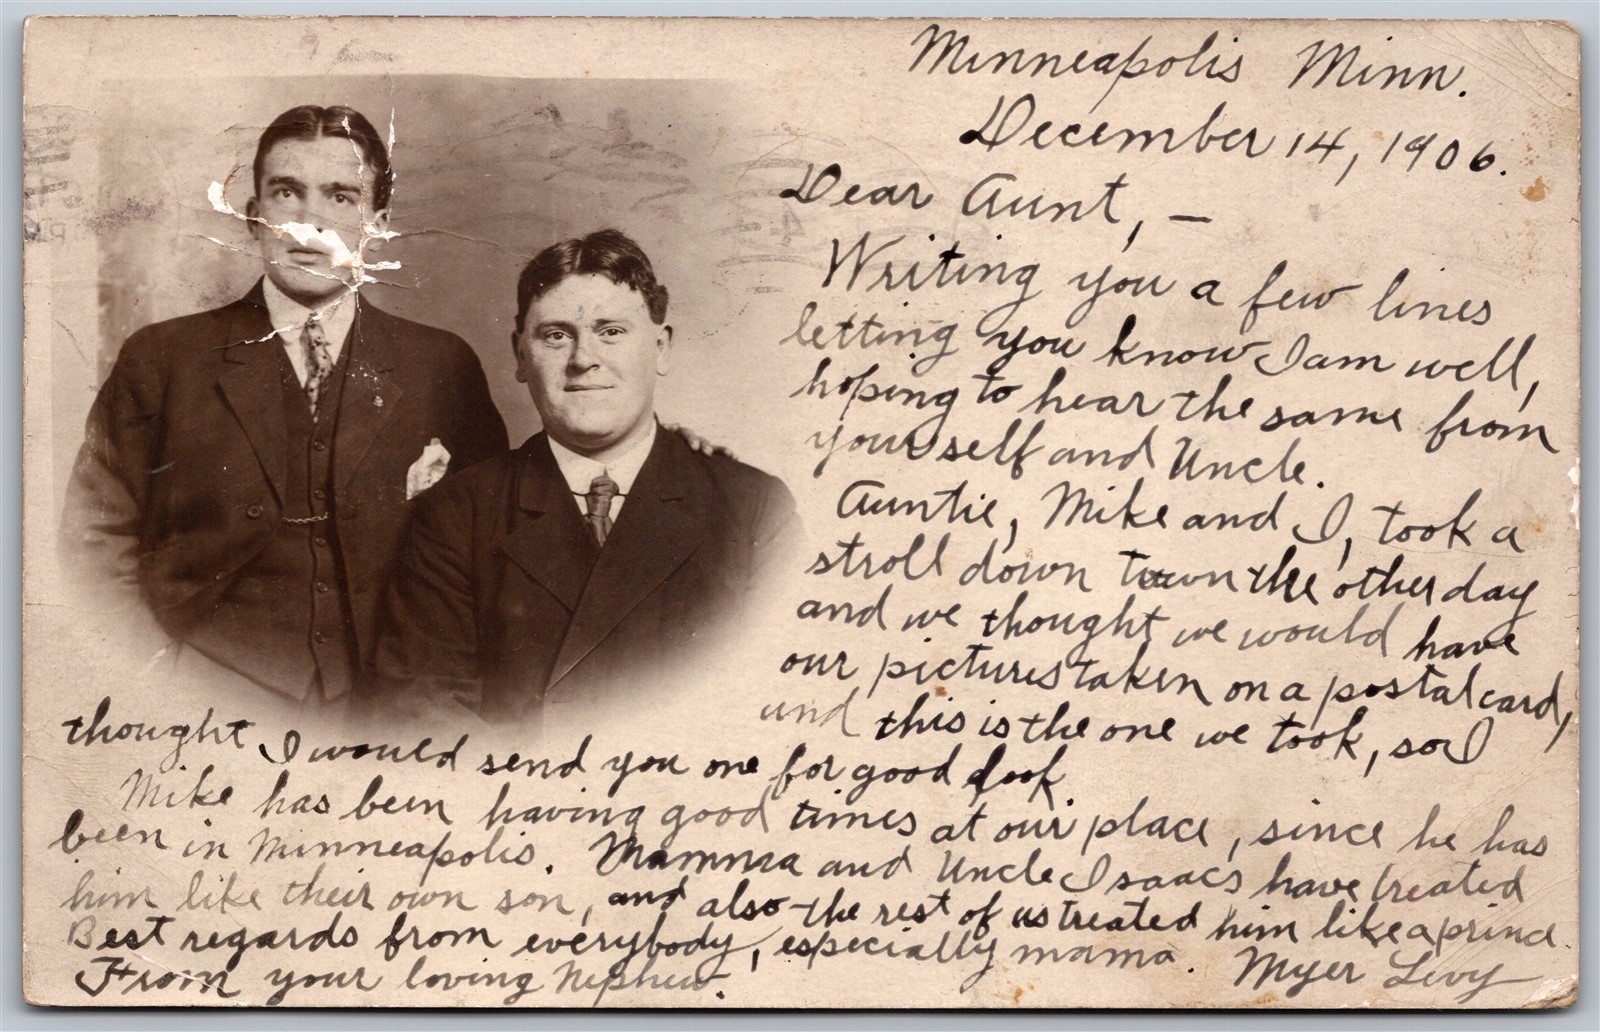 Minneapolis Minn.
December 14, 1906.
Dear Aunt, —
Writing you a few lines
letting you know I am well,
hoping to hear the same from
yourself and Uncle.
Auntie, Mike and I, took a
stroll down town the other day
and we thought we would have
our pictures taken on a postal card,
and this is the one we took, so I
thought I would send you one for good
Mike has been having good times at our place, since he has
been in Minneapolis. Mamma and Uncle Isaacs have treated
him like their own son, and also the rest of us treated him like a princ
Best regards from everybody, especially mama.
From your loving Nephew. Myer Levy